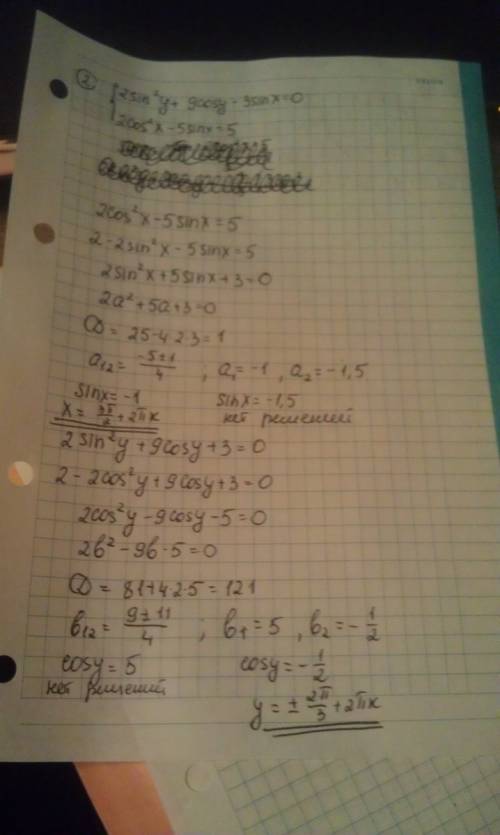 ② { 2sin²y + 9cosy - 3sinx = 0
2cos²x - 5sinx = 5
2cos²x - 5sinx = 5
2 - 2sin²x - 5sinx = 5
2sin²x + 5sinx + 3 = 0
2a² + 5a + 3 = 0
D = 25 - 4·2·3 = 1
a₁₂ = (-5±1)/4 , a₁ = -1 , a₂ = -1,5
sinx = -1 sinx = -1,5
x = 3π/2 + 2πk нет решений
2sin²y + 9cosy + 3 = 0
2 - 2cos²y + 9cosy + 3 = 0
2cos²y - 9cosy - 5 = 0
2b² - 9b - 5 = 0
D = 81 + 4·2·5 = 121
b₁₂ = (9±11)/4 ; b₁ = 5 , b₂ = -1/2
cosy = 5 cosy = -1/2
нет решений
y = ± 2π/3 + 2πk